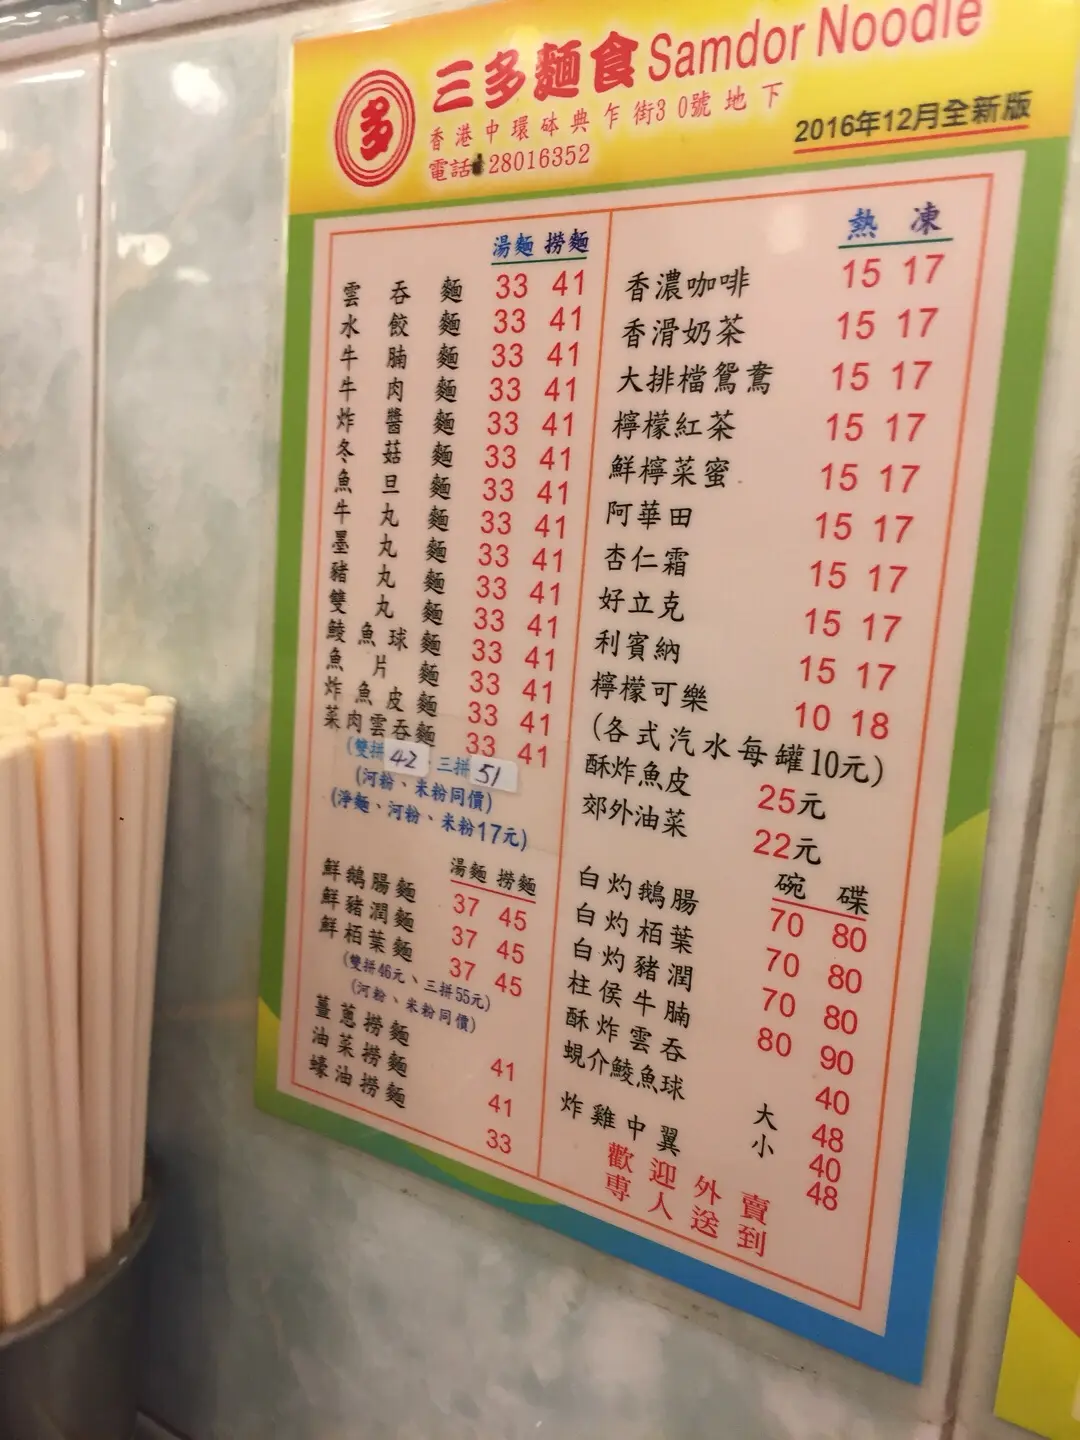 多
三多麵食 Samdor Noodle
香港中環砵典乍街30號地下
電話:28016352
2016年12月全新版
湯麵 撈麵
雲吞麵 33 41
水餃麵 33 41
牛腩麵 33 41
牛肉麵 33 41
炸醬麵 33 41
冬菇麵 33 41
魚旦麵 33 41
牛丸麵 33 41
墨丸麵 33 41
豬丸麵 33 41
雙丸麵 33 41
鯪魚球麵 33 41
魚片麵 33 41
炸魚皮麵 33 41
菜肉雲吞麵 33 41
(雙拼42、三拼51
(河粉、米粉同價)
(淨麵、河粉、米粉17元)
湯麵 撈麵
鮮鵝腸麵 37 45
鮮豬潤麵 37 45
鮮栢葉麵 37 45
(雙拼46元、三拼55元)
(河粉、米粉同價)
薑蔥撈麵 41
油菜撈麵 41
蠔油撈麵 33
熱 凍
香濃咖啡 15 17
香滑奶茶 15 17
大排檔鴛鴦 15 17
檸檬紅茶 15 17
鮮檸菜蜜 15 17
阿華田 15 17
杏仁霜 15 17
好立克 15 17
利賓納 15 17
檸檬可樂 10 18
(各式汽水每罐10元)
酥炸魚皮 25元
郊外油菜 22元
碗 碟
白灼鵝腸 70 80
白灼栢葉 70 80
白灼豬潤 70 80
柱侯牛腩 80 90
酥炸雲吞 40
蜆介鯪魚球 大 48
小 40
炸雞中翼 48
歡迎外賣
專人送到